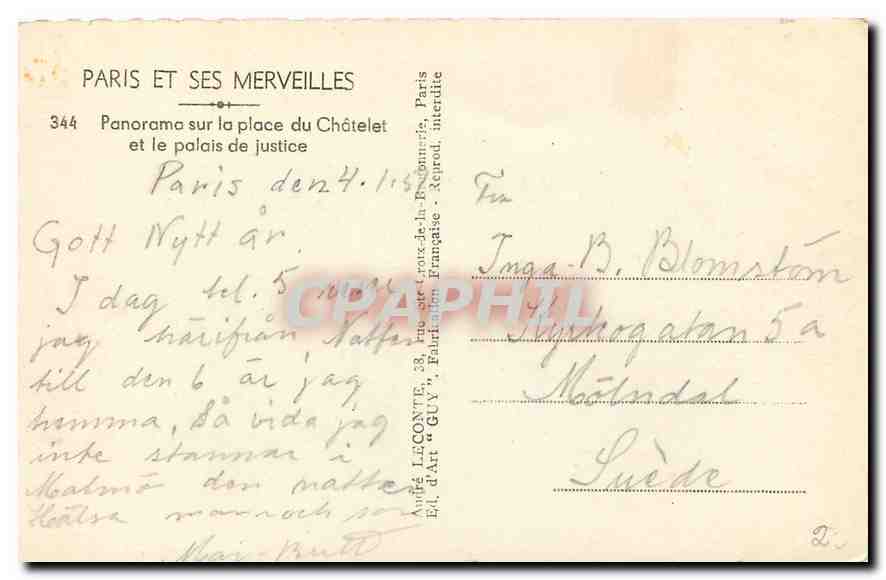 PARIS ET SES MERVEILLES
344 Panorama sur la place du Châtelet
et le palais de justice
Paris den 4.1.5
Gott Nytt år.
I dag kl. 5
jag härifrån Natten
till den 6 är jag
hemma, så vida jag
inte stannar i
Malmö den natten
Hälsa
Maj-Britt
André LECONTE, 38, rue Ste-Croix-de-la-Bretonnerie, Paris
Ed. d'Art "GUY", Fabrication Française - Reprod. interdite
CPAPHIL
Frk
Inga-B. Blomström
Kyrkogatan 5a
Mölndal
Suède
2.